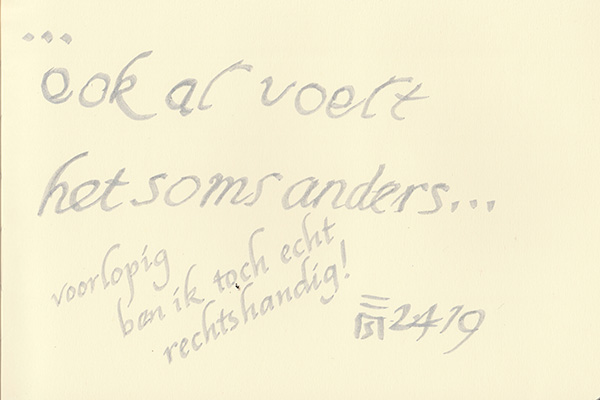 ...
ook al voelt
het soms anders...
voorlopig
ben ik toch echt
rechtshandig!
2419